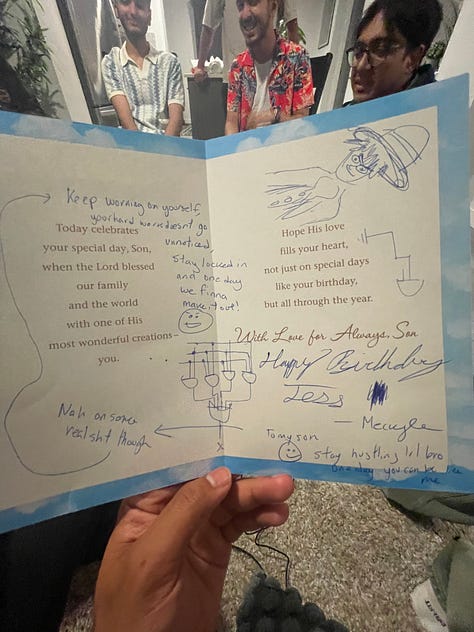 Keep working on yourself,
your hard work doesn't go
unnoticed
stay locked in
and one day
we finna
make it out!
Today celebrates
your special day, Son,
when the Lord blessed
our family
and the world
with one of His
most wonderful creations–
you.
Nah on some
real shit though
X
Hope His love
fills your heart,
not just on special days
like your birthday,
but all through the year.
With Love for Always, Son
Happy Birthday
Jess
To my son
stay hustling lil bro
one day you can be like
me